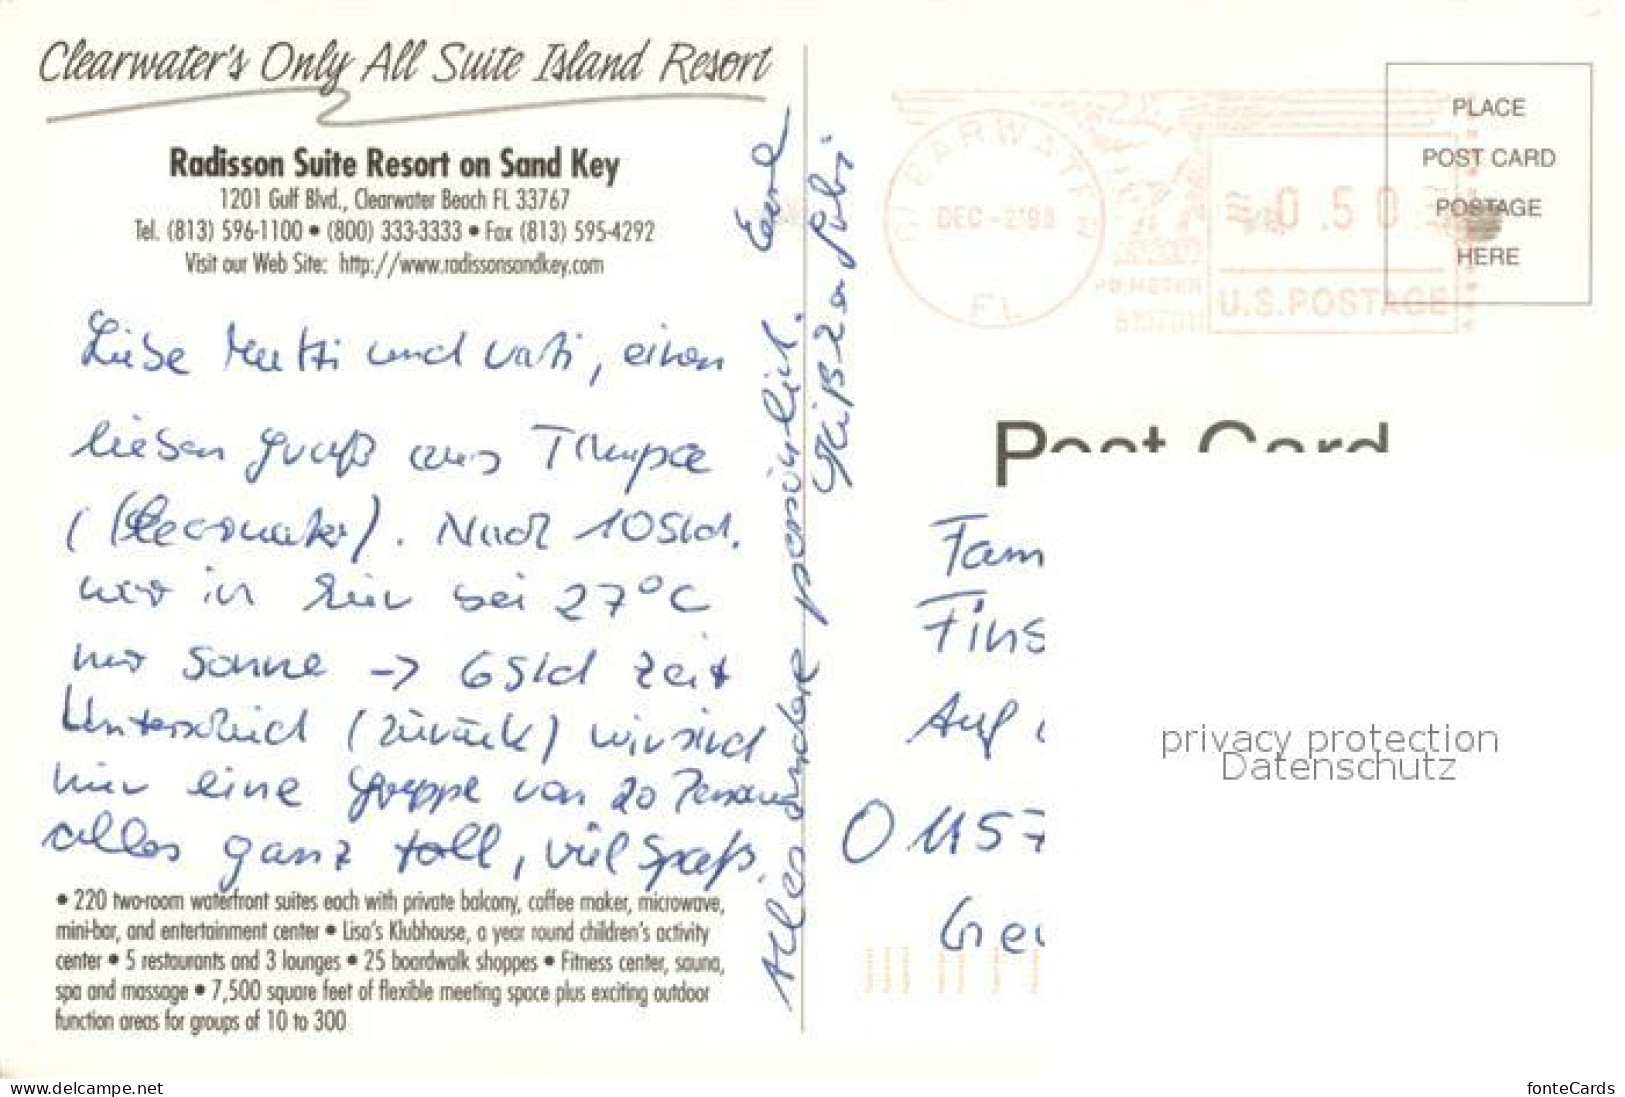 Clearwater's Only All Suite Island Resort
Radisson Suite Resort on Sand Key
1201 Gulf Blvd., Clearwater Beach FL 33767
Tel. (813) 596-1100 • (800) 333-3333 • Fax (813) 595-4292
Visit our Web Site: http://www.radissonsandkey.com
Liebe Mutti und Vati, einen
lieben Gruß aus Tampa
(Clearwater). Nach 10Std.
wir in hier bei 27°C
nur Sonne -> 6Std Zeit
Unterschied (zurück) wir sind
hier eine Gruppe von 20 Personen
alles ganz toll, viel Spaß.
Alles andere persönlich.
Grüße
• 220 two-room waterfront suites each with private balcony, coffee maker, microwave,
mini-bar, and entertainment center • Lisa's Klubhouse, a year round children's activity
center • 5 restaurants and 3 lounges • 25 boardwalk shoppes • Fitness center, sauna,
spa and massage • 7,500 square feet of flexible meeting space plus exciting outdoor
function areas for groups of 10 to 300
CLEARWATER
DEC -2'98
FL
PB METER
0.50
U.S. POSTAGE
PLACE
POST CARD
POSTAGE
HERE
Post Card
Fam
Fins
Auf
0 457
Ger
privacy protection
Datenschutz
www.delcampe.net
fonteCards